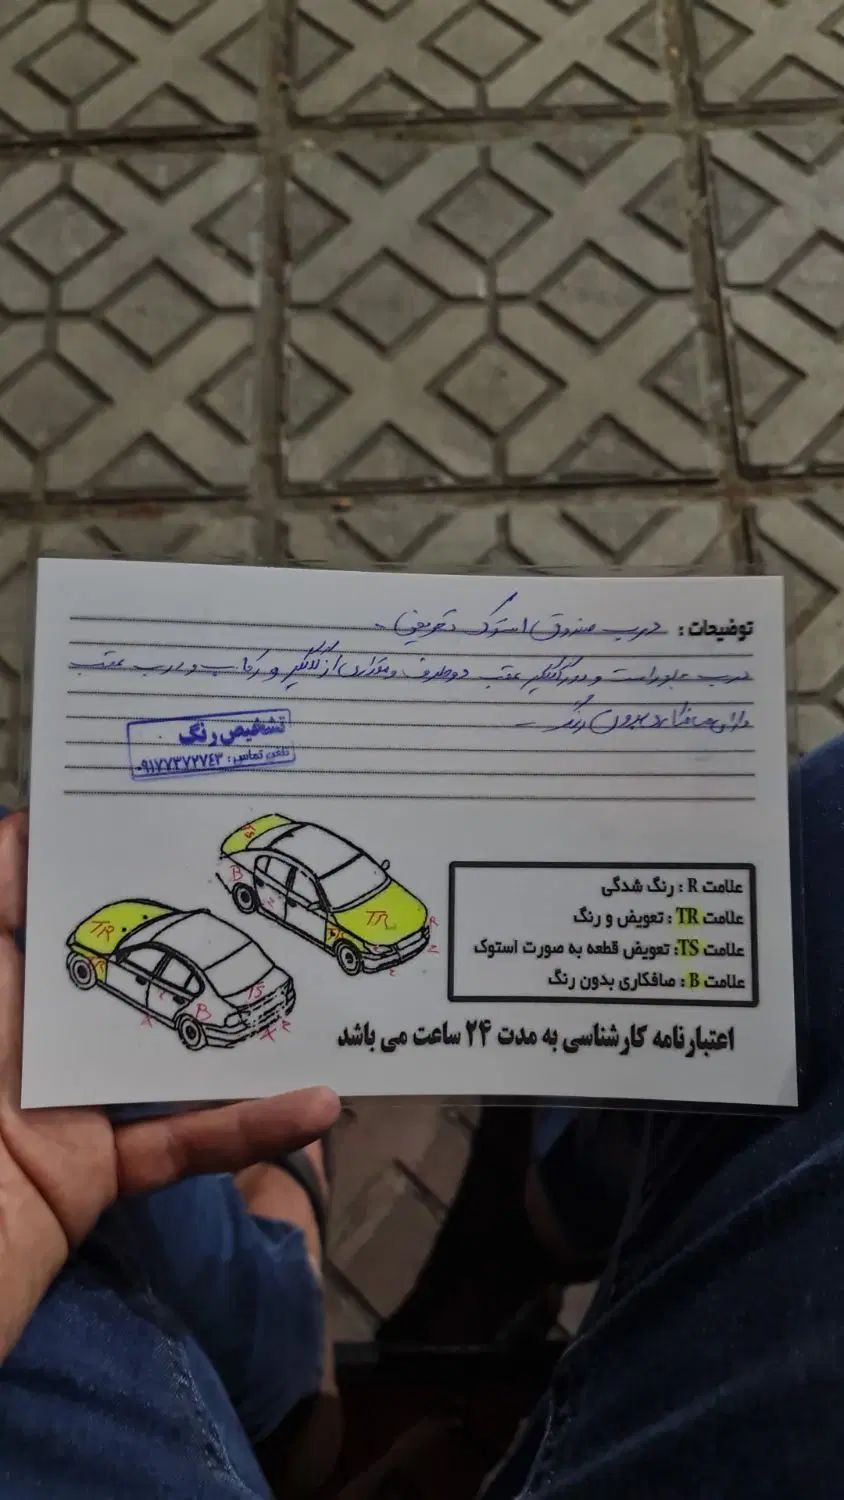 توضیحات : درب صندوق استوک تعویض -
درب جلو راست و دور گلگیر عقب دو طرف و مقداری از گلگیر و رکاب و درب عقب
دارای صافکاری بدون رنگ -
تشخیص رنگ
تلفن تماس: ۰۹۱۷۷۳۷۲۷۴۳
TS
B
TR
R
TR
TR
B
TS
R
علامت R : رنگ شدگی
علامت TR : تعویض و رنگ
علامت TS: تعویض قطعه به صورت استوک
علامت B : صافکاری بدون رنگ
اعتبارنامه کارشناسی به مدت ۲۴ ساعت می باشد